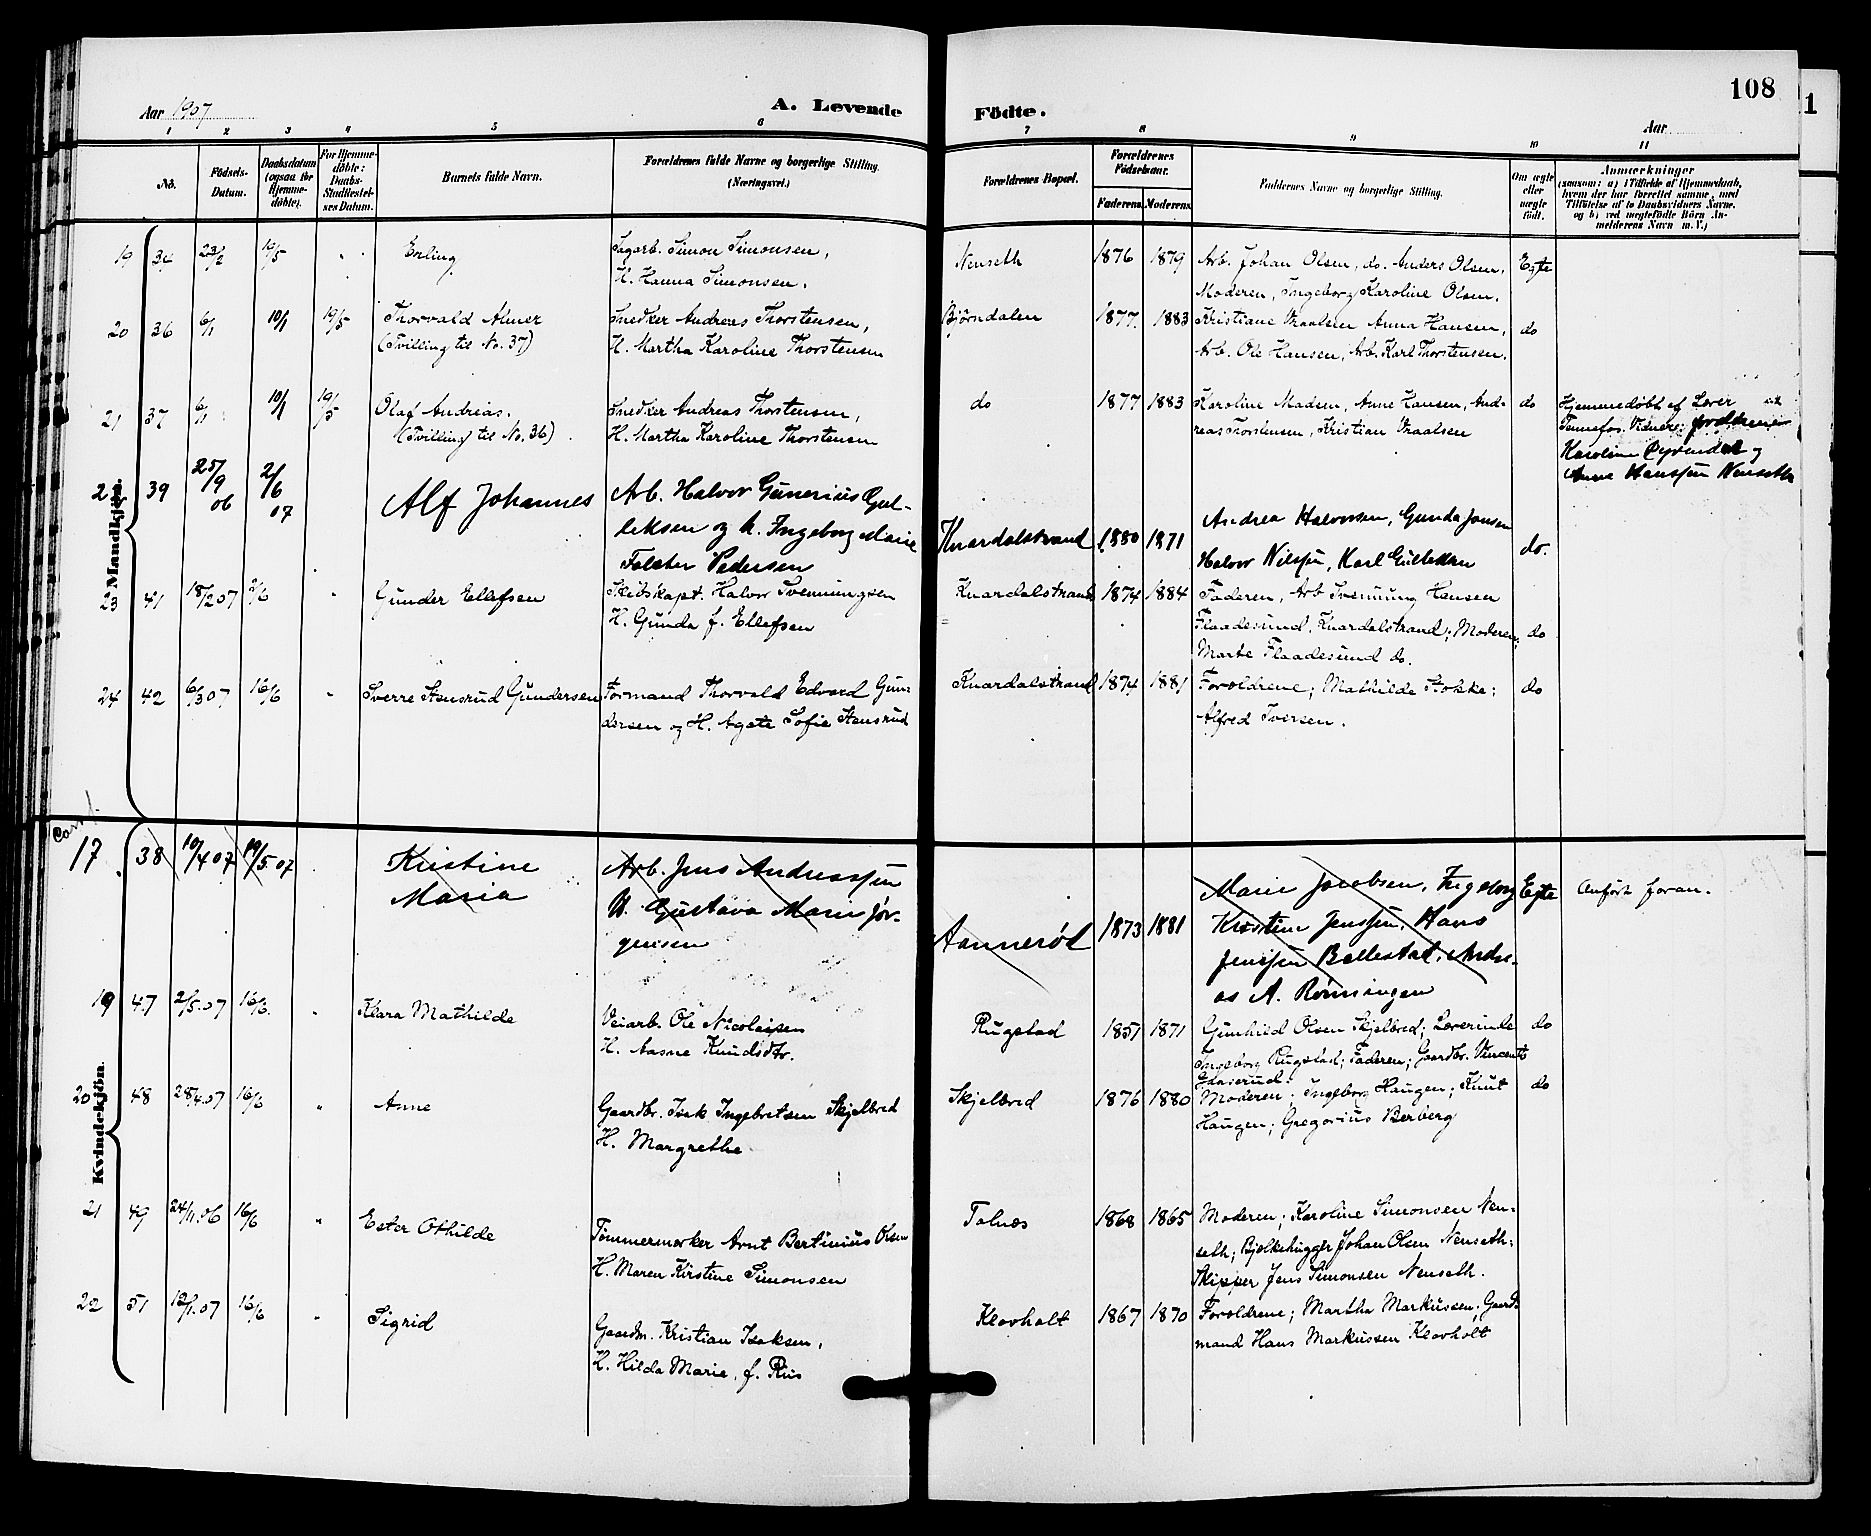 108
Aar 1907
A. Levende
Födte.
Aar
1 2 3 4 5 6 7 8 9 10 11
No. Födsels-Datum. Daabsdatum (ogsaa for Hjemmedöbte). For Hjemmedöbte: Daabs-Stadfæstelses Datum. Barnets fulde Navn. Forældrenes fulde Navne og borgerlige Stilling. (Næringsvei.)
Forældrenes Bopæl. Forældrenes Födselsaar. Faderens. Moderens. Faddernes Navne og borgerlige Stilling. Om ægte eller uægte födt. Anmærkninger
(saasom: a) i Tilfælde af Hjemmedaab, hvem der har forrettet samme, med Tilföielse af to Daabsvidners Navne, og b) ved uægtefödte Börn Anmelderens Navn m. V.)
Mandkjön.
19 34 23/2 19/5 " Erling Sagarb. Simon Simonsen,
H. Hanna Simonsen.
Nenseth 1876 1879 Arb. Johan Olsen, do. Anders Olsen,
Moderen, Ingeborg Karoline Olsen. Egte
20 36 6/1 10/1 19/5 Thorvald Almer
(Tvilling til No. 37)
Snedker Andreas Thorstensen,
H. Martha Karoline Thorstensen
Bjørndalen 1877. 1883 Kristiane Vraalsen Anna Hansen,
Arb. Ole Hansen, Arb. Karl Thorstensen. do
21 37 6/1 10/1 19/5 Olaf Andrias.
(Tvilling til No. 36)
Snedker Andreas Thorstensen,
H. Martha Karoline Thorstensen
do 1877 1883 Karoline Madsen, Anne Hansen, And-
reas Thorstensen, Kristian Vraalsen do
Hjemmedøbt af Lærer
Vidnere:
Karoline og
Anne Hanssen Nenseth
39 25/9 06 2/6 07 Alf Johannes Arb. Halvor Gunerius Gul-
leksen og h. Ingeborg Marie
Falster Pedersen
Knardalstrand 1880 1871 Andrea Halvorsen, Gunda Jonsen
Halvor Nilssen, Karl Gulleksen do.
23 41 18/2 07 2/6 " Gunder Ellefsen Skibskapt. Halvor Svenningsen
H. Gunda f. Ellefsen
Knardalstrand 1874 1884 Faderen, Arb Svenning Hansen
Flaadesund, Knardalstrand; Moderen;
Marte Flaadesund do. do
24 42 6/3 07 16/6 " Sverre Stensrud Gundersen Formand Thorvald Edvard Gun-
dersen og H. Agate Sofie Stensrud
Knardalstrand 1874 1881 Forældrene; Mathilde Stokke;
Alfred Iversen. do
Kvindekjön.
17 38 10/4 07 19/5 07 Kristine
Maria
Arb. Jens Andreassen
H. Gustava Marie Jør-
gensen
Aannerød 1873 1881 Marie Jacobsen, Ingeborg
Kristine Jenssen, Hans
Jenssen Ballestad, Andre-
as A. Rønningen Egte Anført foran.
19 47 2/5.07 16/6. " Klara Mathilde Veiarb. Ole Nicolaisen
H. Aasne Knudsdtr.
Rugstad 1851 1871 Gunhild Olsen Skjelbred; Lærerinde
Ingeborg Rugstad; Faderen; Gaardbr. Vincents do
20 48 28/4.07 16/6 " Anne Gaardbr. Isak Ingebretsen Skjelbred
H. Margrethe
Skjelbred 1876 1880 Moderen; Ingeborg Haugen; Knut
Haugen; Gregorius Berberg do
21 49 24/11.06 16/6 " Ester Othilde Tømmermerker Arnt Bertinius Olsen
H. Maren Kirstine Simonsen
Tolnæs 1868 1865 Moderen; Karoline Simonsen Nen-
seth; Bjelkehugger Johan Olsen Nenseth;
Skipper Jens Simonsen Nenseth.
22 51 12/1.07 16/6 " Sigrid Gaardm. Kristian Isaksen,
H. Hilda Marie, f. Riis
Klovholt 1867 1870 Forældrene; Martha Markussen; Gaard-
mand Hans Markussen Klovholt